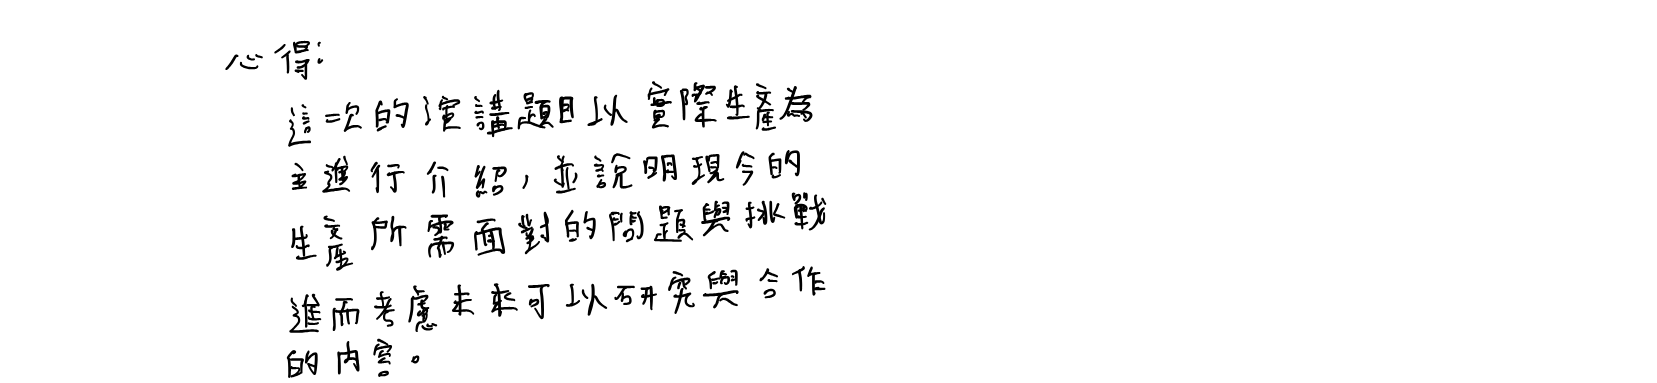 心得:
這次的演講題目以實際生產為
主進行介紹，並說明現今的
生產所需面對的問題與挑戰
進而考慮未來可以研究與合作
的內容。